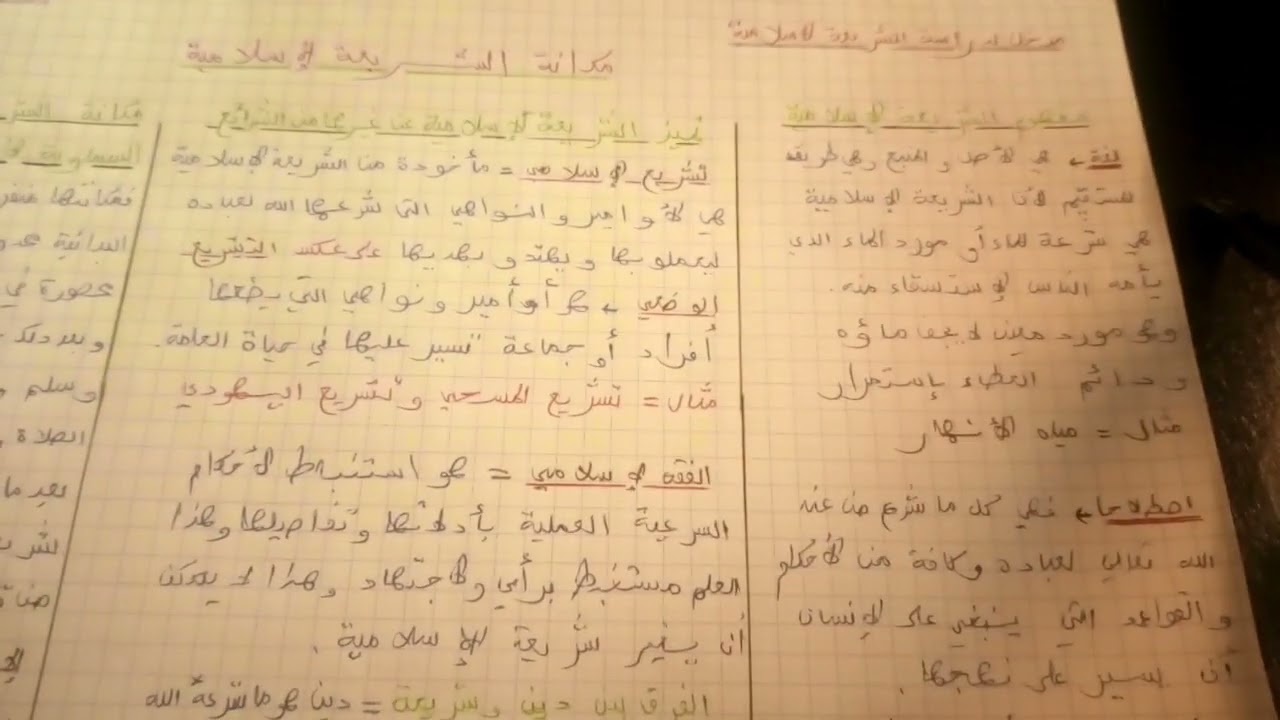 مدخل لدراسة الشريعة الإسلامية
مكانة الشريعة الإسلامية
مفهوم الشريعة الإسلامية
لغة ← هي الأصل والمنبع وهي طريقة
مستقيم لأن الشريعة الإسلامية
هي شرعة للماء أو مورد الماء الذي
يأمه الناس لإستسقاء منه.
وهو مورد معين لا يجف ماؤه
ودائم العطاء بإستمرار
مثال = مياه الأنهار
اصطلاحا ← فهي كل ما شرع من عند
الله تعالى لعباده وكافة من الأحكام
والقواعد التي ينبغي على الإنسان
أن يسير على نهجها.
تميز الشريعة الإسلامية عن غيرها من الشرائع
تشريع الإسلامي = مأخودة من الشريعة الإسلامية
هي الأوامير والنواهي التي شرعها الله لعباده
ليعملو بها ويهتد و بهديها على عكس التشريع
الوضعي ← هو أوأمير ونواهي التي يضعها
أفراد أو جماعة تسير عليها في حياة العامة.
مثال = تشريع المسحي وتشريع اليهودي
الفقه الإسلامي = هو استنباط الأحكام
السرعية العملية بأدلاتها وتفاصيلها وهذا
العلم مستنبط برأي والاجتهاد وهذا لا يمكن
أن يغير شريعة الإسلامية.
الفرق بين دين وشريعة = دين هو ماشرعه الله
مكانة الشر
السماوية الأ
فمكانتها
البدائية
محصورة في
وبعد ذلك
وسلم و
الصلاة
بعد ما
لشريـ
الإ